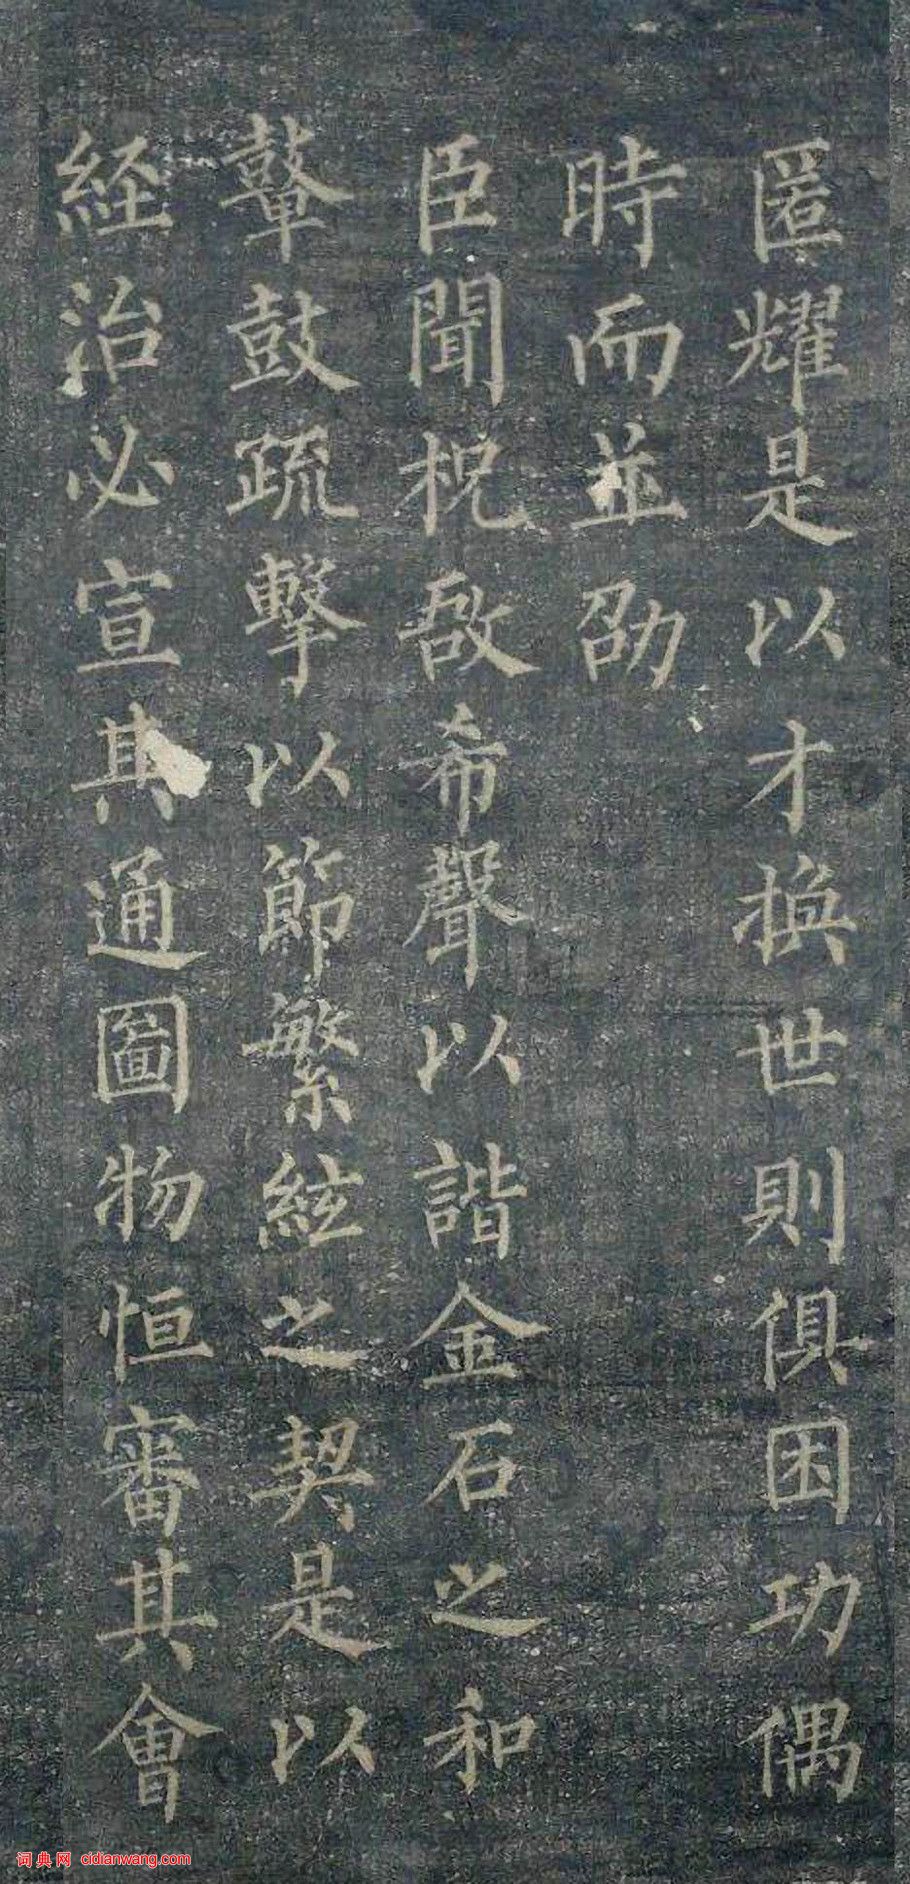 匿耀是以才換世則俱困功偶
時而並劭
臣聞柷敔希聲以諧金石之和
鼙鼓疏擊以節繁絃之契是以
経治必宣其通圖物恒審其會
词典网 cidianwang.com